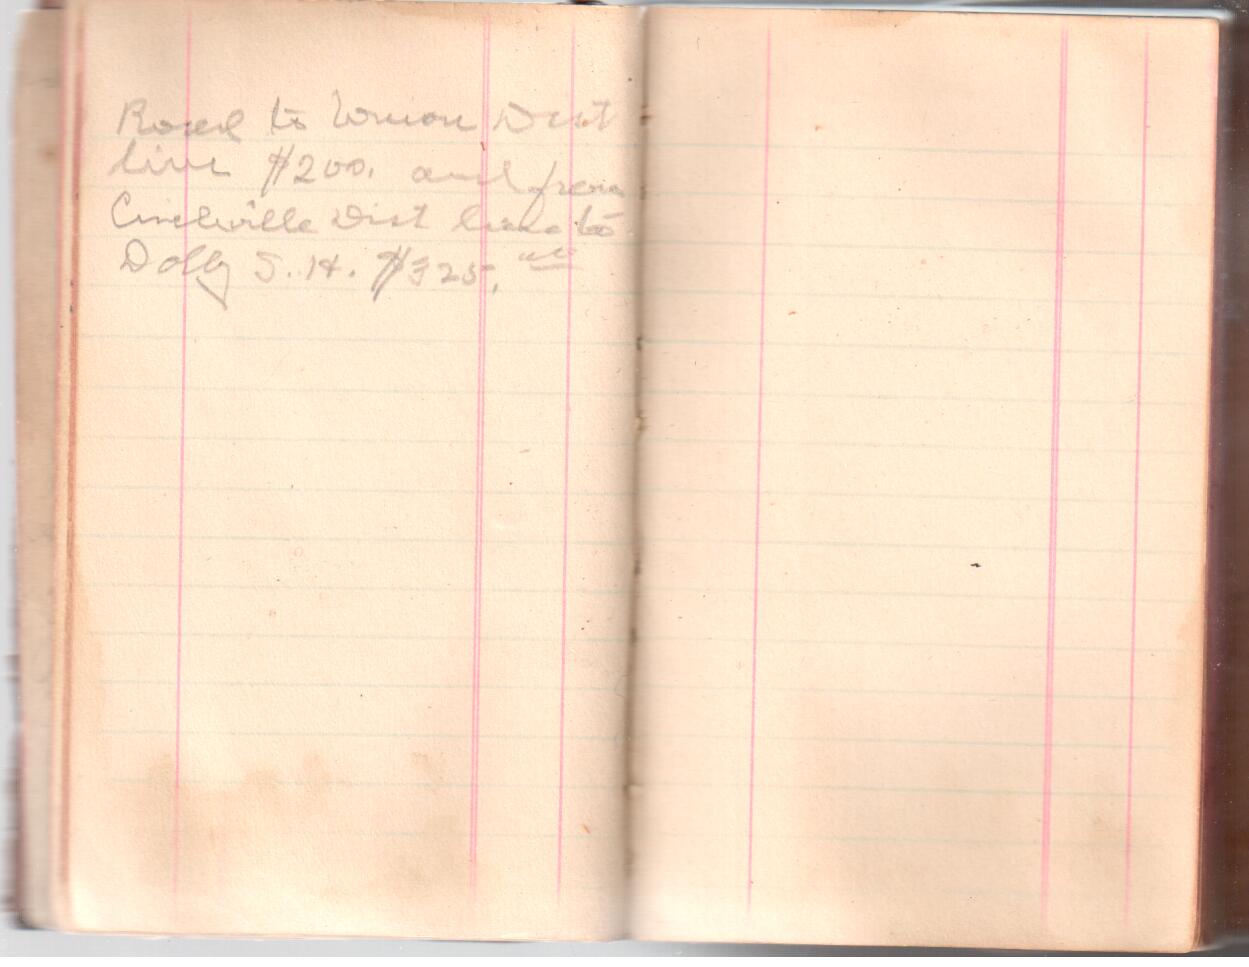 Road to Union Dist
line $200. and from
Circleville Dist line to
Dolly S. H. $325.